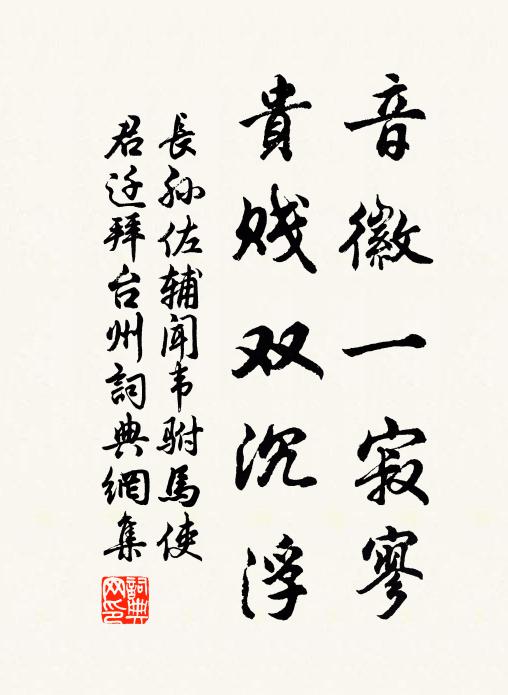 音徽一寂寥
貴贱双沉浮
長孙佐辅闻韦驸馬使
君迁拜台州詞典網集
詞典
网印